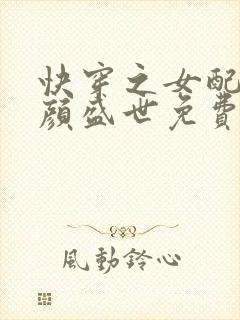 快穿之女配
顏盛世免費
風動鈴心